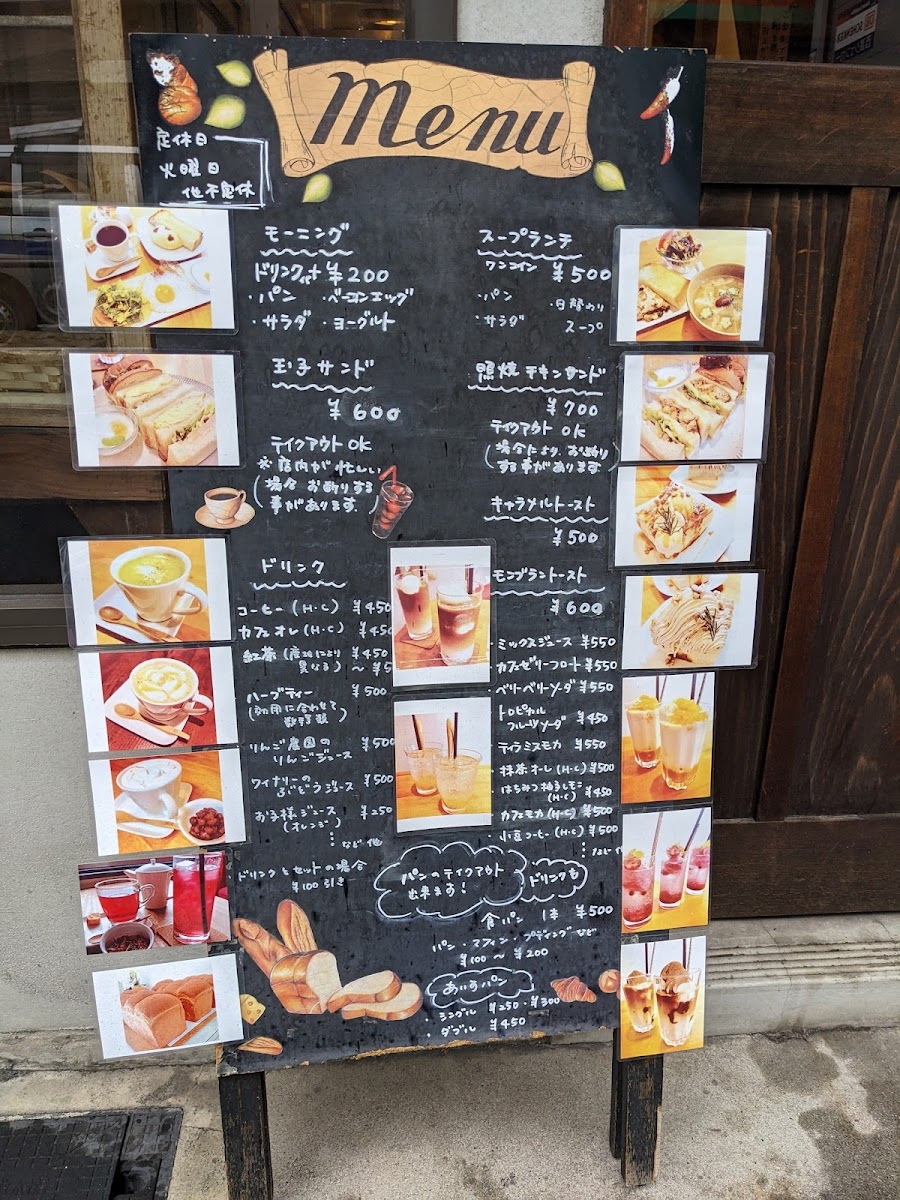 Menu
定休日
火曜日
他不定休
モーニング
ドリンク付+ ¥200
・パン ・ベーコンエッグ
・サラダ ・ヨーグルト
玉子サンド
¥600
テイクアウトOK
※店内が忙しい
場合 お断りする
事があります
ドリンク
コーヒー(H・C) ¥450
カフェオレ(H・C) ¥450
紅茶(産地により
異なる) 〜¥5
ハーブティー ¥500
(効用に合わせて
数種類)
りんご農園の ¥500
りんごジュース
ワイナリーの ¥500
ぶどうジュース
お子様ジュース ¥250
(オレンジ)
など他
ドリンクとセットの場合
¥100引き
スープランチ
ワンコイン ¥500
・パン ・日替わり
・サラダ スープ
照焼チキンサンド
¥700
テイクアウト OK
(場合により、お断り
する事があります)
キャラメルトースト
¥500
モンブラントースト
¥600
・ミックスジュース ¥550
・カフェゼリーフロート ¥550
・ベリーベリーソーダ ¥550
・トロピカル
フルーツソーダ ¥450
・ティラミスモカ ¥550
・抹茶オーレ(H・C) ¥500
・はちみつ柚子レモン
(H・C) ¥450
・カフェモカ(H・C) ¥500
・小豆コーヒー(H・C) ¥500
など他
パンのテイクアウト
出来ます!
ドリンクも
食パン 1本 ¥500
パン・マフィン・プディングなど
¥100 〜 ¥200
あいすパン
・シングル ¥250・¥300
・ダブル ¥450